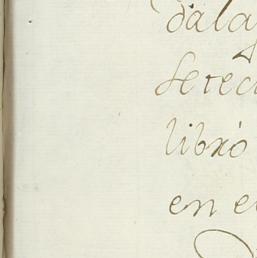 dala
setec
libró
en e